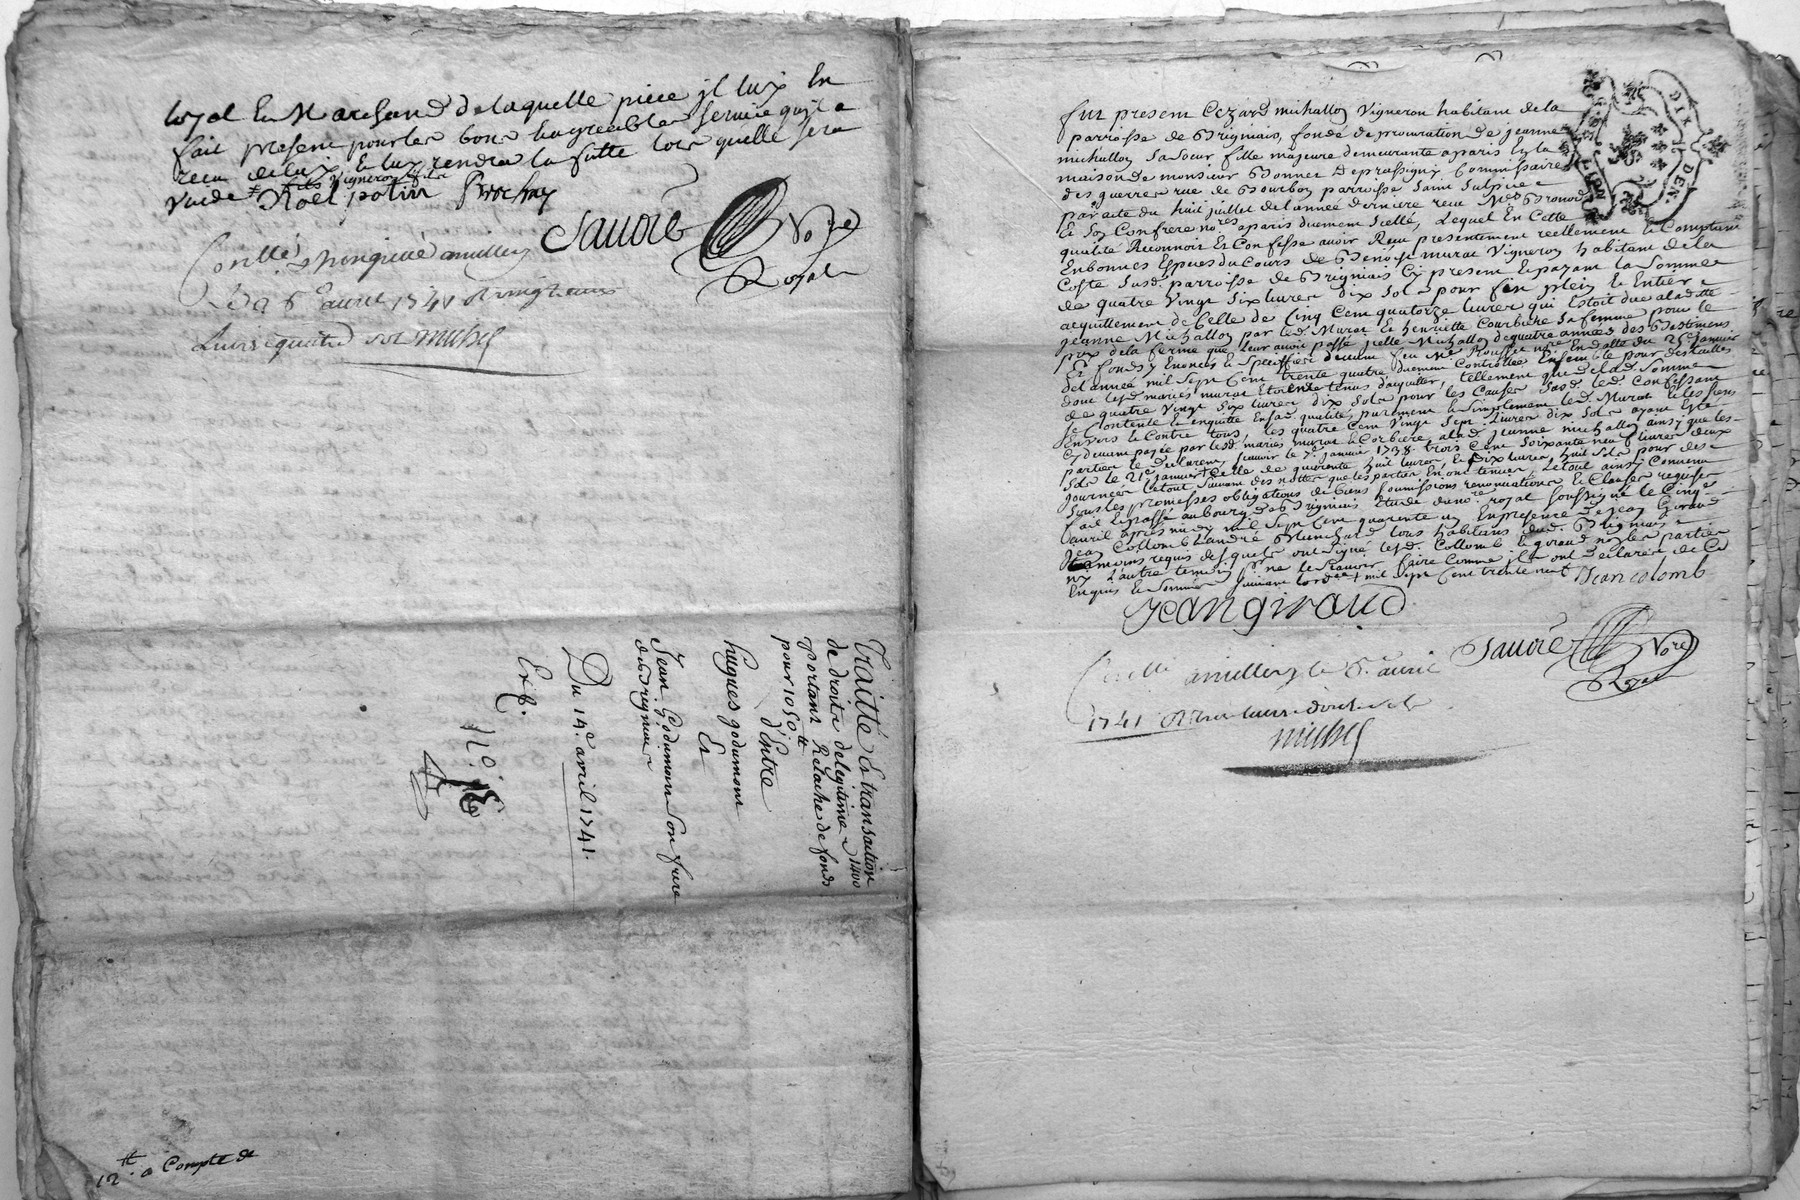 loyal En Marchand de laquelle piece jl luy En
fait present pour les bons & agreables service qu'jl a
receu de luy, & luy rendra la futte lors quelle sera
vuide
Noel potin Brochay
Sauoré Nore
Royal
Conllé à millery
Le 6e auril 1741
Luire quatre sol michel
Traitté Et transaction
de droits delegitime 1400
portant Relache de fonds
pour 1050tt
d'Entre
hugues godumont
Et
Jean Godumont son frere
de Brignais
Du 14e avril 1741.
Exp.
N°.
12tt a Compte de
DIX DEN.
LION
fut present Cezard michallon Vigneron habitant de la
parroisse de Brignais, fondé de procuration de jeanne
michallon sa soeur fille majeure demeurante aparis En la
maison de monsieur Bonnet Deprassigny Commissaire
des guerres rue de Bourbon parroisse saint sulpice
par acte du huit juillet de l'année derniere receu
Et son Confrere nores aparis duement scellé, Lequel En Cette
qualité Reconnoit Et Confesse auoir Receu presentement reellement & Comptant
En bonnes Especes du Cours de Benoist murat Vigneron habitant de la
Coste susd. parroisse de Brignais Cy present & payant la somme
de quatre vingt six liures dix sols pour fin plein & Entier
acquittement de Celle de Cinq Cent quatorze liures qui Estoit due a lad.
jeanne Michallon par led. Murat & henriette Courbiere sa femme pour le
prix de la ferme que leur auoit passé jcelle Michallon de quatre années des Bastimens
Et fonds y Enoncés & speciffiés deuant feu Me Rousset nore En datte du 25e januier
de l'année mil sept Cent trente quatre duement Controllée
dont lesd. mariés murat Etoient tenus d'acquitter, tellement que de lad. somme
de quatre vingt six liures dix sols pour les Causes susd. led. Confessant
se Contente & Enquitte En sad. qualité, purement & simplement led. Murat & les siens
Envers & Contre tous, les quatre Cent vingt sept liures dix sols ayant Esté
Cy deuant payée par lesd. mariés murat & Corbiere alad. jeanne michallon ainsy que les
parties le Declarent, scauoir le 7e januier 1738. trois Cent soixante neuf liures deux
sols le 21e januier Celle de quarente huit liures, & dix liures huit sols pour des
journées Le tout suiuant des nottes que les parties En ont tenues, Le tout ainsy Conuenu
sous les promesses obligations de biens soumissions renonciations & Clauses requises
fait & passé au bourg de Brignais Etude du nore royal soussigné le Cinqe
auril apres midy mil sept Cent quarente un En presence de jean Giraud
jean Collomb & andré Blanchard tous habitans dud. Brignais
temoins requis desquels ont signé lesd. Collomb & giraud non les parties
ny L'autre temoin pour ne le scauoir faire Comme jls ont declarés de Ce
Enquis & sommés suiuant lordce mil sept Cent trente neuf Jean Colomb
Jean giraud
Sauoré Nore
Royal
Conllé amillery le 6e auril
1741 douze sols
michel